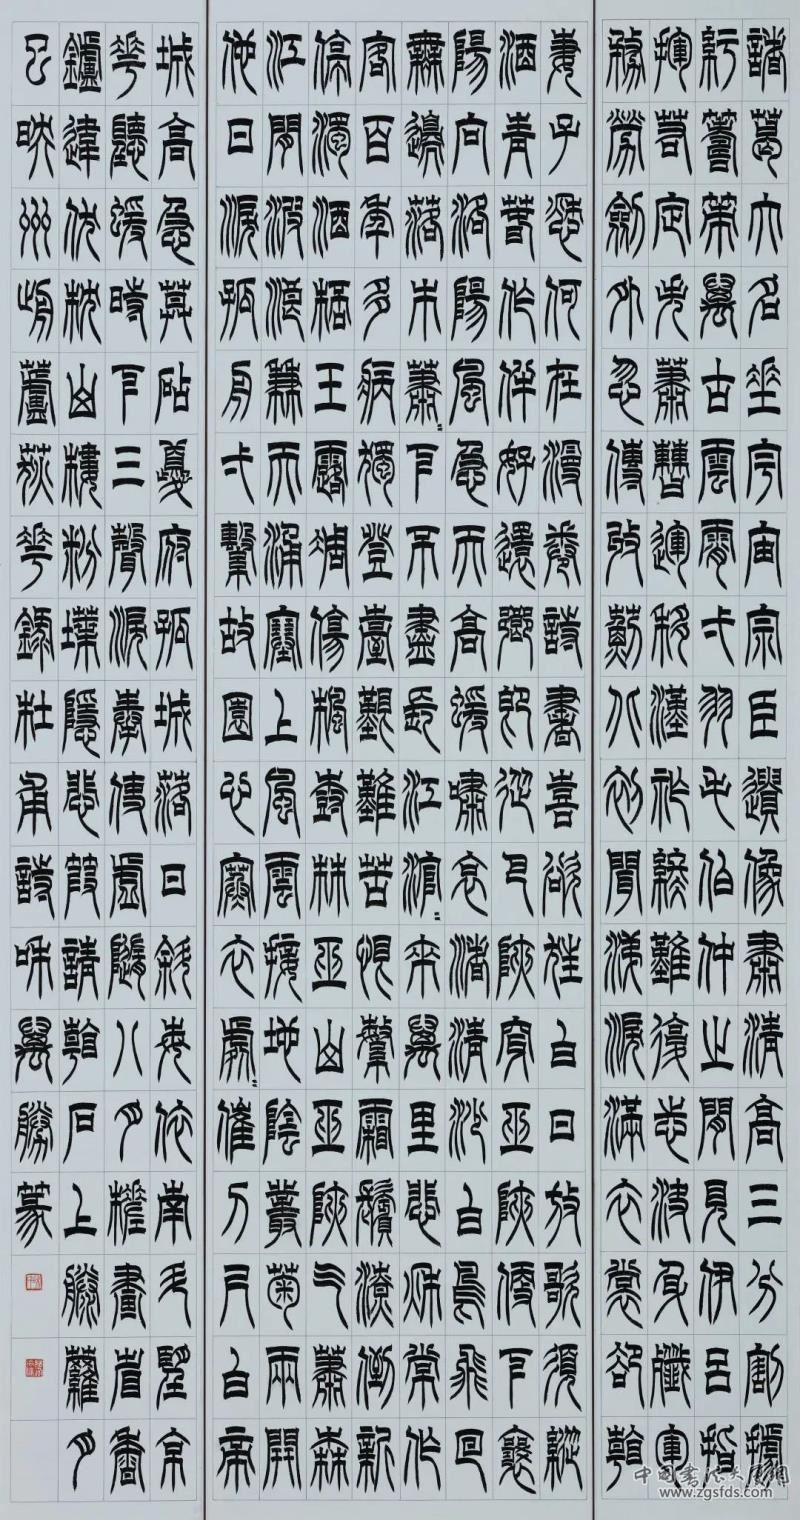 諸葛大名垂宇宙宗臣遺像肅清高三分割據
紆籌策萬古雲霄一羽毛伯仲之間見伊呂指
揮若定失蕭曹運移漢祚終難復志決身殲軍
務勞劍外忽傳收薊北初聞涕淚滿衣裳卻看
妻子愁何在漫卷詩書喜欲狂白日放歌須縱
酒青春作伴好還鄉即從巴峽穿巫峽便下襄
陽向洛陽風急天高猿嘯哀渚清沙白鳥飛回
無邊落木蕭=下不盡長江滾=來萬里悲秋常作
客百年多病獨登臺艱難苦恨繁霜鬢潦倒新
停濁酒杯玉露凋傷楓樹林巫山巫峽氣蕭森
江間波浪兼天湧塞上風雲接地陰叢菊兩開
他日淚孤舟一繫故園心寒衣處=催刀尺白帝
城高急暮砧夔府孤城落日斜每依南斗望京
華聽猿時下三聲淚奉使虛隨八月槎畫省香
鑪違伏枕山樓粉堞隱悲笳請看石上藤蘿月
已映洲前蘆荻花錄杜甫詩秋萬勝篆
www.zgsfds.com